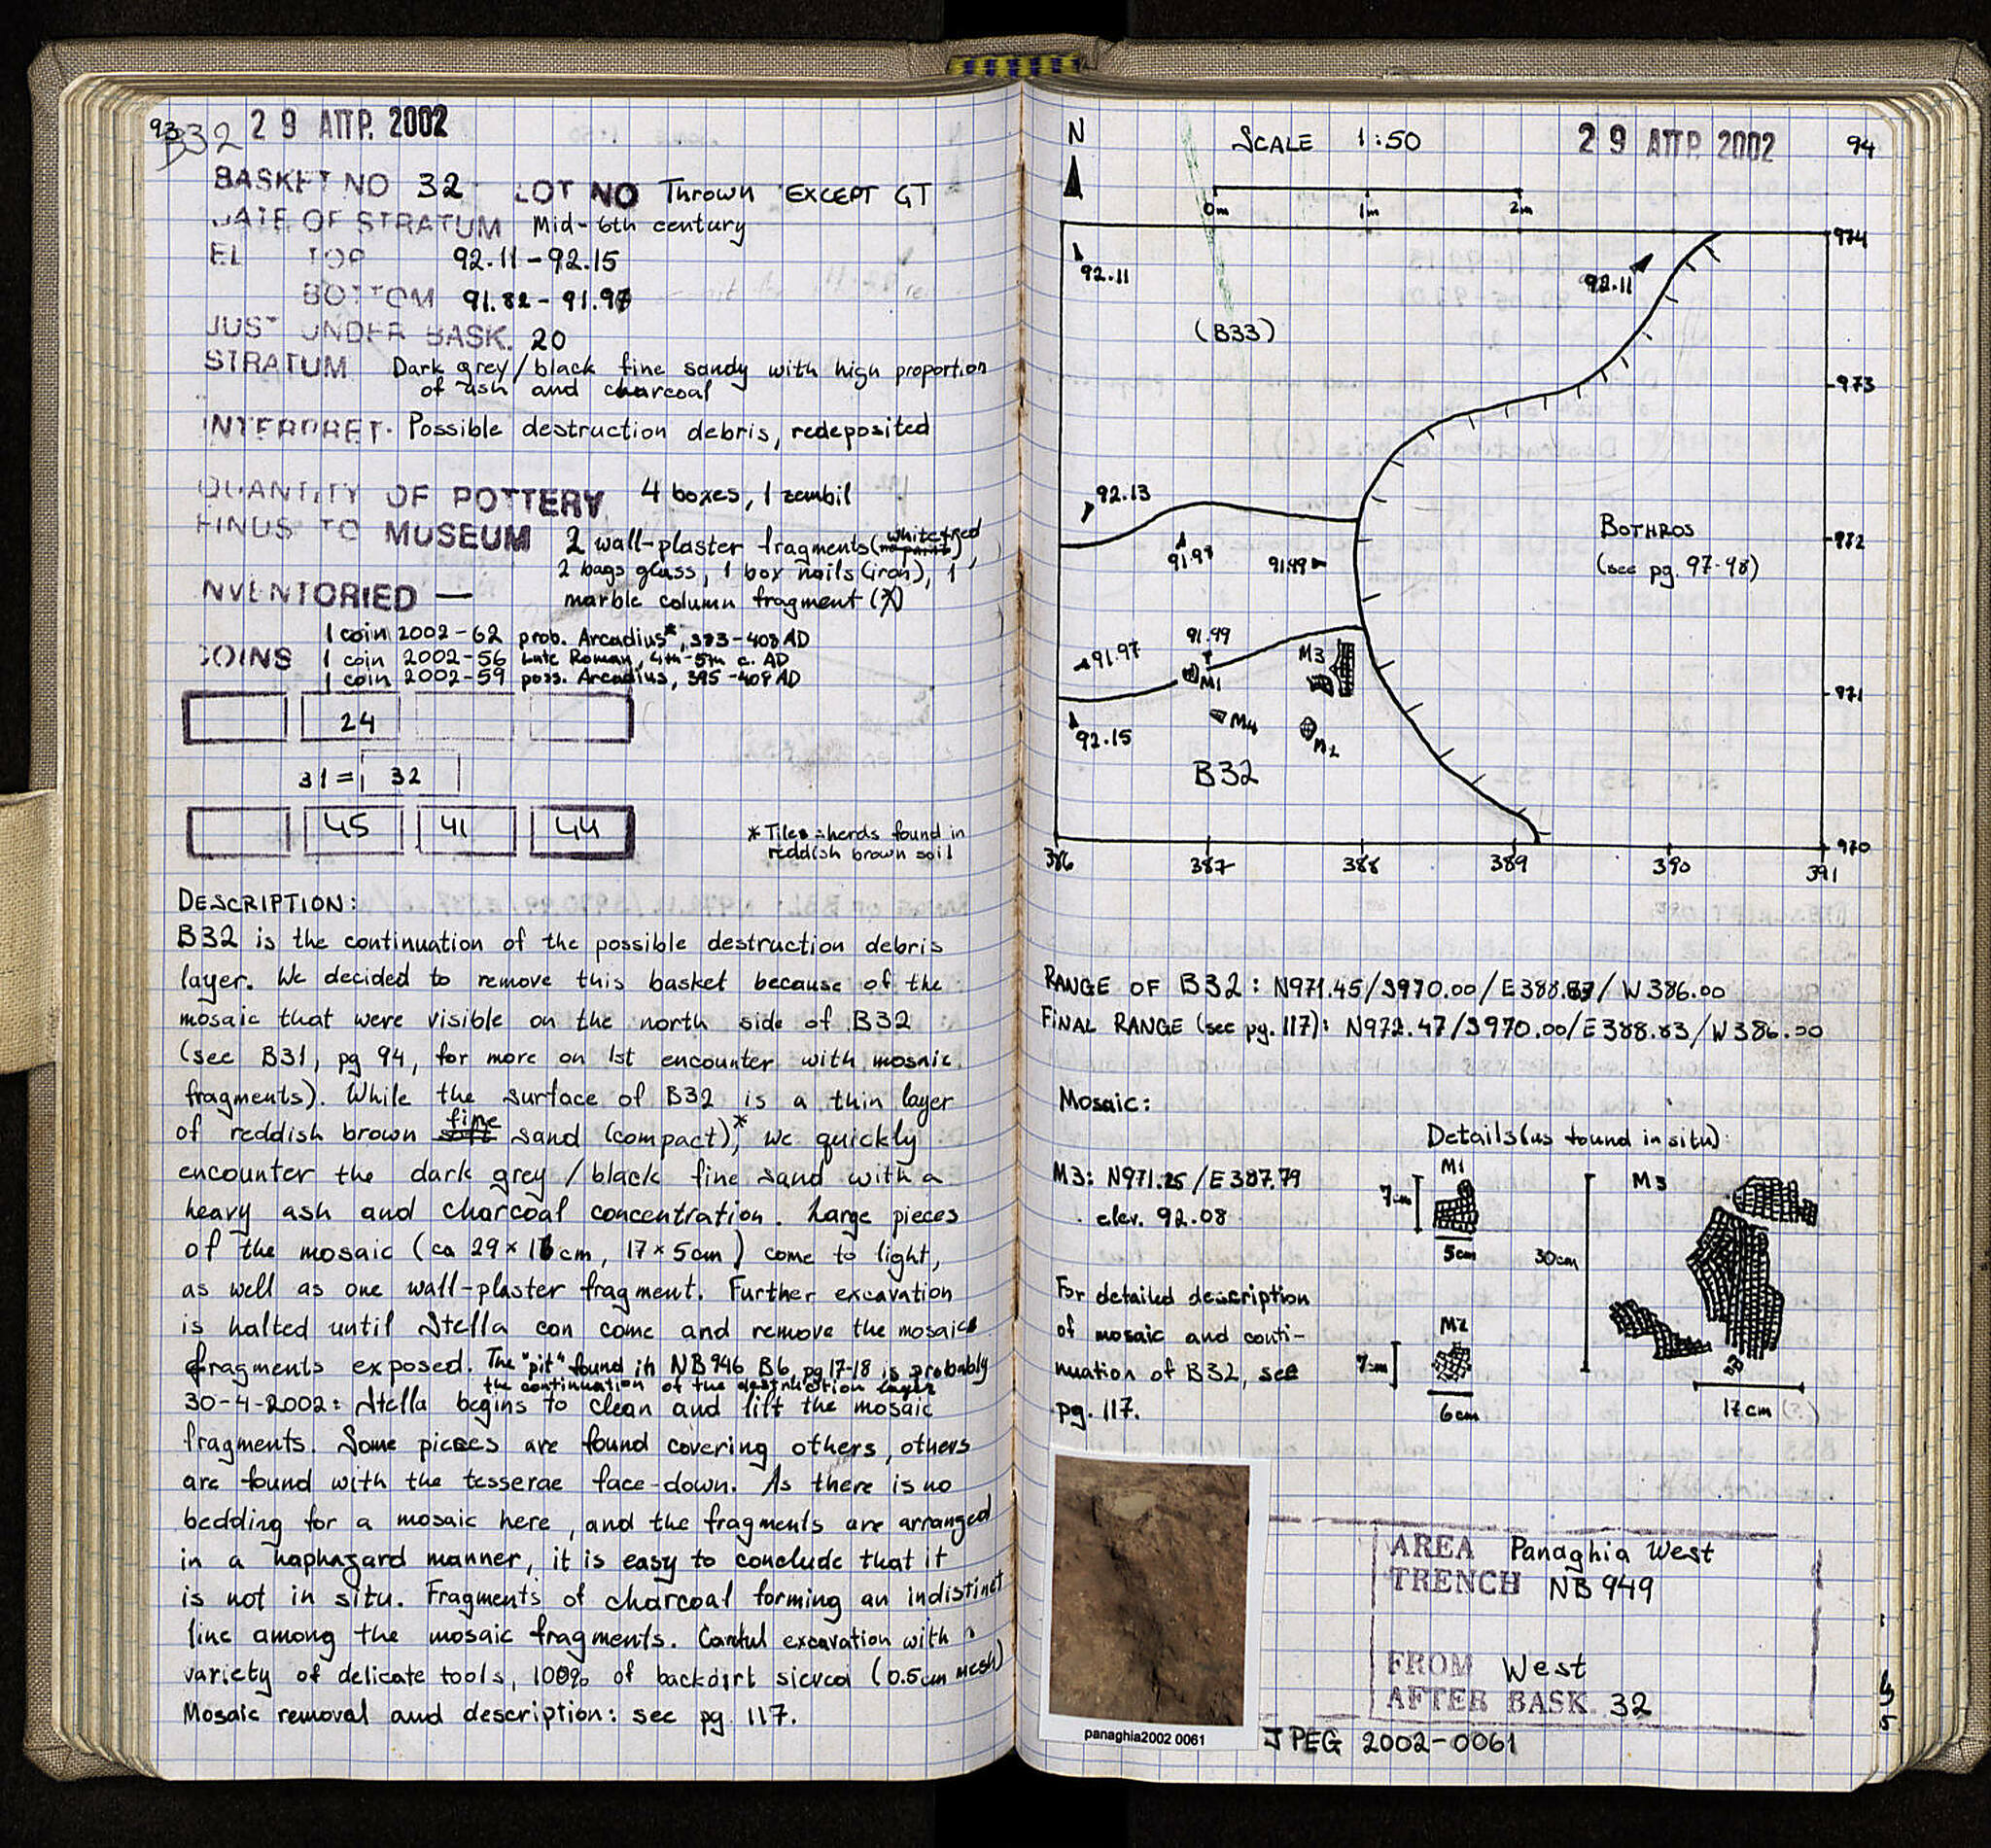 93
B32 29 ΑΠΡ. 2002
BASKET NO 32 LOT NO Thrown EXCEPT GT
DATE OF STRATUM Mid-6th century
EL TOP 92.11-92.15
BOTTOM 91.82-91.97
JUST UNDER BASK. 20
STRATUM Dark grey/black fine sandy with high proportion
of ash and charcoal
INTERPRET. Possible destruction debris, redeposited
QUANTITY OF POTTERY 4 boxes, 1 zembil
FINDS TO MUSEUM 2 wall-plaster fragments (white+red),
2 bags glass, 1 box nails (iron), 1
INVENTORIED — marble column fragment (X)
1 coin 2002-62 prob. Arcadius*, 383-408 AD
COINS 1 coin 2002-56 Late Roman, 4th-5th c. AD
1 coin 2002-59 poss. Arcadius, 395-408 AD
24
31 = 32
45 41 44
* Tiles sherds found in
reddish brown soil
DESCRIPTION:
B32 is the continuation of the possible destruction debris
layer. We decided to remove this basket because of the
mosaic that were visible on the north side of B32
(see B31, pg 94, for more on 1st encounter with mosaic
fragments). While the surface of B32 is a thin layer
of reddish brown fine sand (compact),* we quickly
encounter the dark grey/black fine sand with a
heavy ash and charcoal concentration. Large pieces
of the mosaic (ca 29×16cm, 17×5cm) come to light,
as well as one wall-plaster fragment. Further excavation
is halted until Stella can come and remove the mosaic
fragments exposed. The "pit" found in NB946 B6, pg 17-18 is probably
the continuation of the destruction layer
30-4-2002: Stella begins to clean and lift the mosaic
fragments. Some pieces are found covering others, others
are found with the tesserae face-down. As there is no
bedding for a mosaic here, and the fragments are arranged
in a haphazard manner, it is easy to conclude that it
is not in situ. Fragments of charcoal forming an indistinct
line among the mosaic fragments. Careful excavation with a
variety of delicate tools, 100% of backdirt sieved (0.5cm mesh)
Mosaic removal and description: see pg. 117.
N SCALE 1:50 29 ΑΠΡ. 2002 94
0m 1m 2m
974
92.11 92.11
(B33)
973
92.13
BOTHROS
972
91.97 91.49 (see pg. 97-98)
91.99
91.97 M3
M1 971
M4
92.15 M2
B32
970
386 387 388 389 390 391
RANGE OF B32: N971.45/S970.00/E388.83/W386.00
FINAL RANGE (see pg. 117): N972.47/S970.00/E388.83/W386.00
Mosaic:
Details (as found in situ):
M3: N971.25/E387.79 M1 M3
7cm
elev. 92.08
5cm 30cm
For detailed description
of mosaic and conti- M2
nuation of B32, see 7cm
pg. 117. 6cm 17cm (?)
AREA Panaghia West
TRENCH NB 949
FROM West
AFTER BASK 32
panaghia2002 0061
JPEG 2002-0061